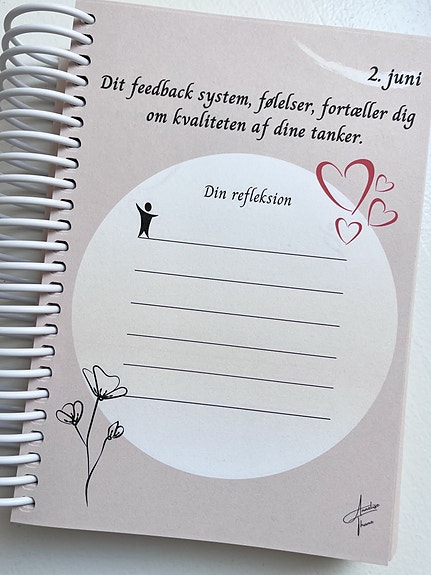 2. juni
Dit feedback system, følelser, fortæller dig
om kvaliteten af dine tanker.
Din refleksion